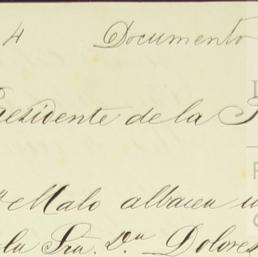 4 Documento
residente de la
Malo albacea
la Sra. Dn. Dolores